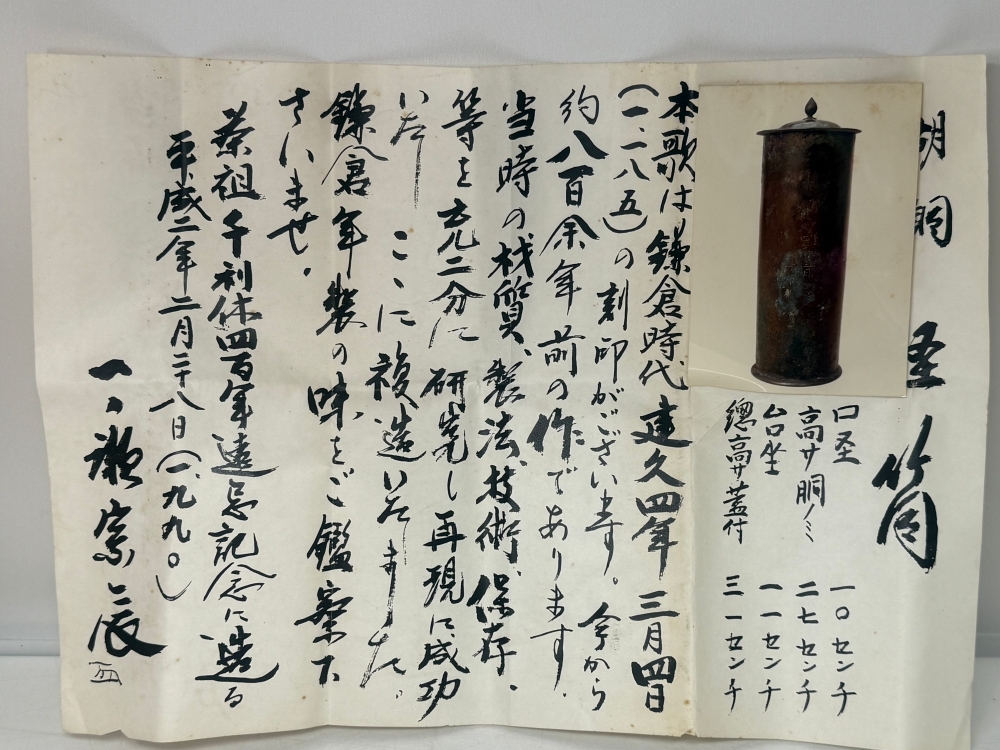 胡銅 圣筒
口圣 一〇センチ
高サ胴ノミ 二七センチ
台坐 一一センチ
總高サ蓋付 三一センチ
本歌は鎌倉時代 建久四年 三月四日
(一一八五)の刻印がございます。今から
約八百余年前の作であります。
当時の材質、製法、技術、保存、
等を充二分に研究し再現に成功
いたしここに複造いたしました。
鎌倉年製の味をご鑑察下
さいませ。
茶祖千利休四百年遠忌記念に造る
平成二年二月二十八日(一九九〇)
一ノ瀬宗辰